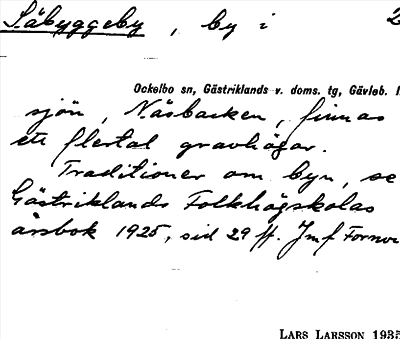 Såbyggeby, by i 2
Ockelbo sn, Gästriklands v. doms. tg, Gävleb. l
sjön, Näsbacken, finnas
ett flertal gravhögar.
Traditioner om byn, se
Gästriklands Folkhögskolas
årsbok 1925, sid 29 ff. Jmf Fornv
LARS LARSSON 1935